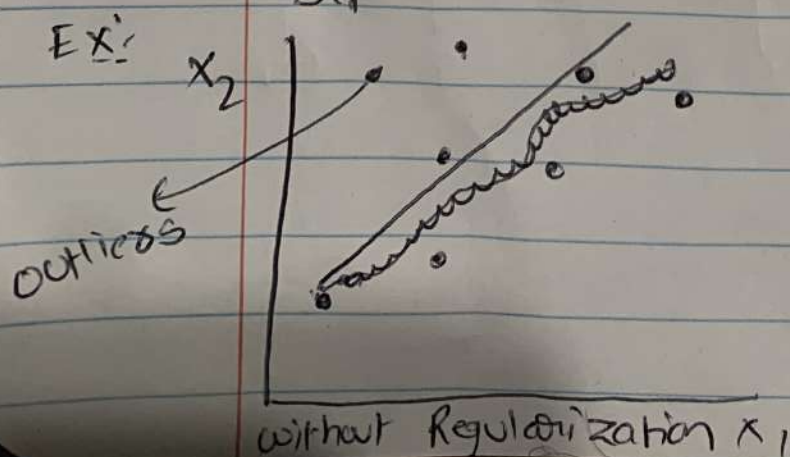 Ex:
X2
outliers
without Regularization X1